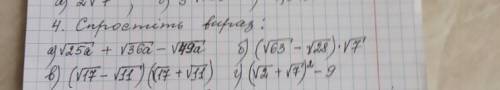 4. Спростіть вираз:
а) √25a + √36a − √49a б) (√63 − √28) · √7
в) (√17 − √11)(√17 + √11) г) (√2 + √7)² − 9